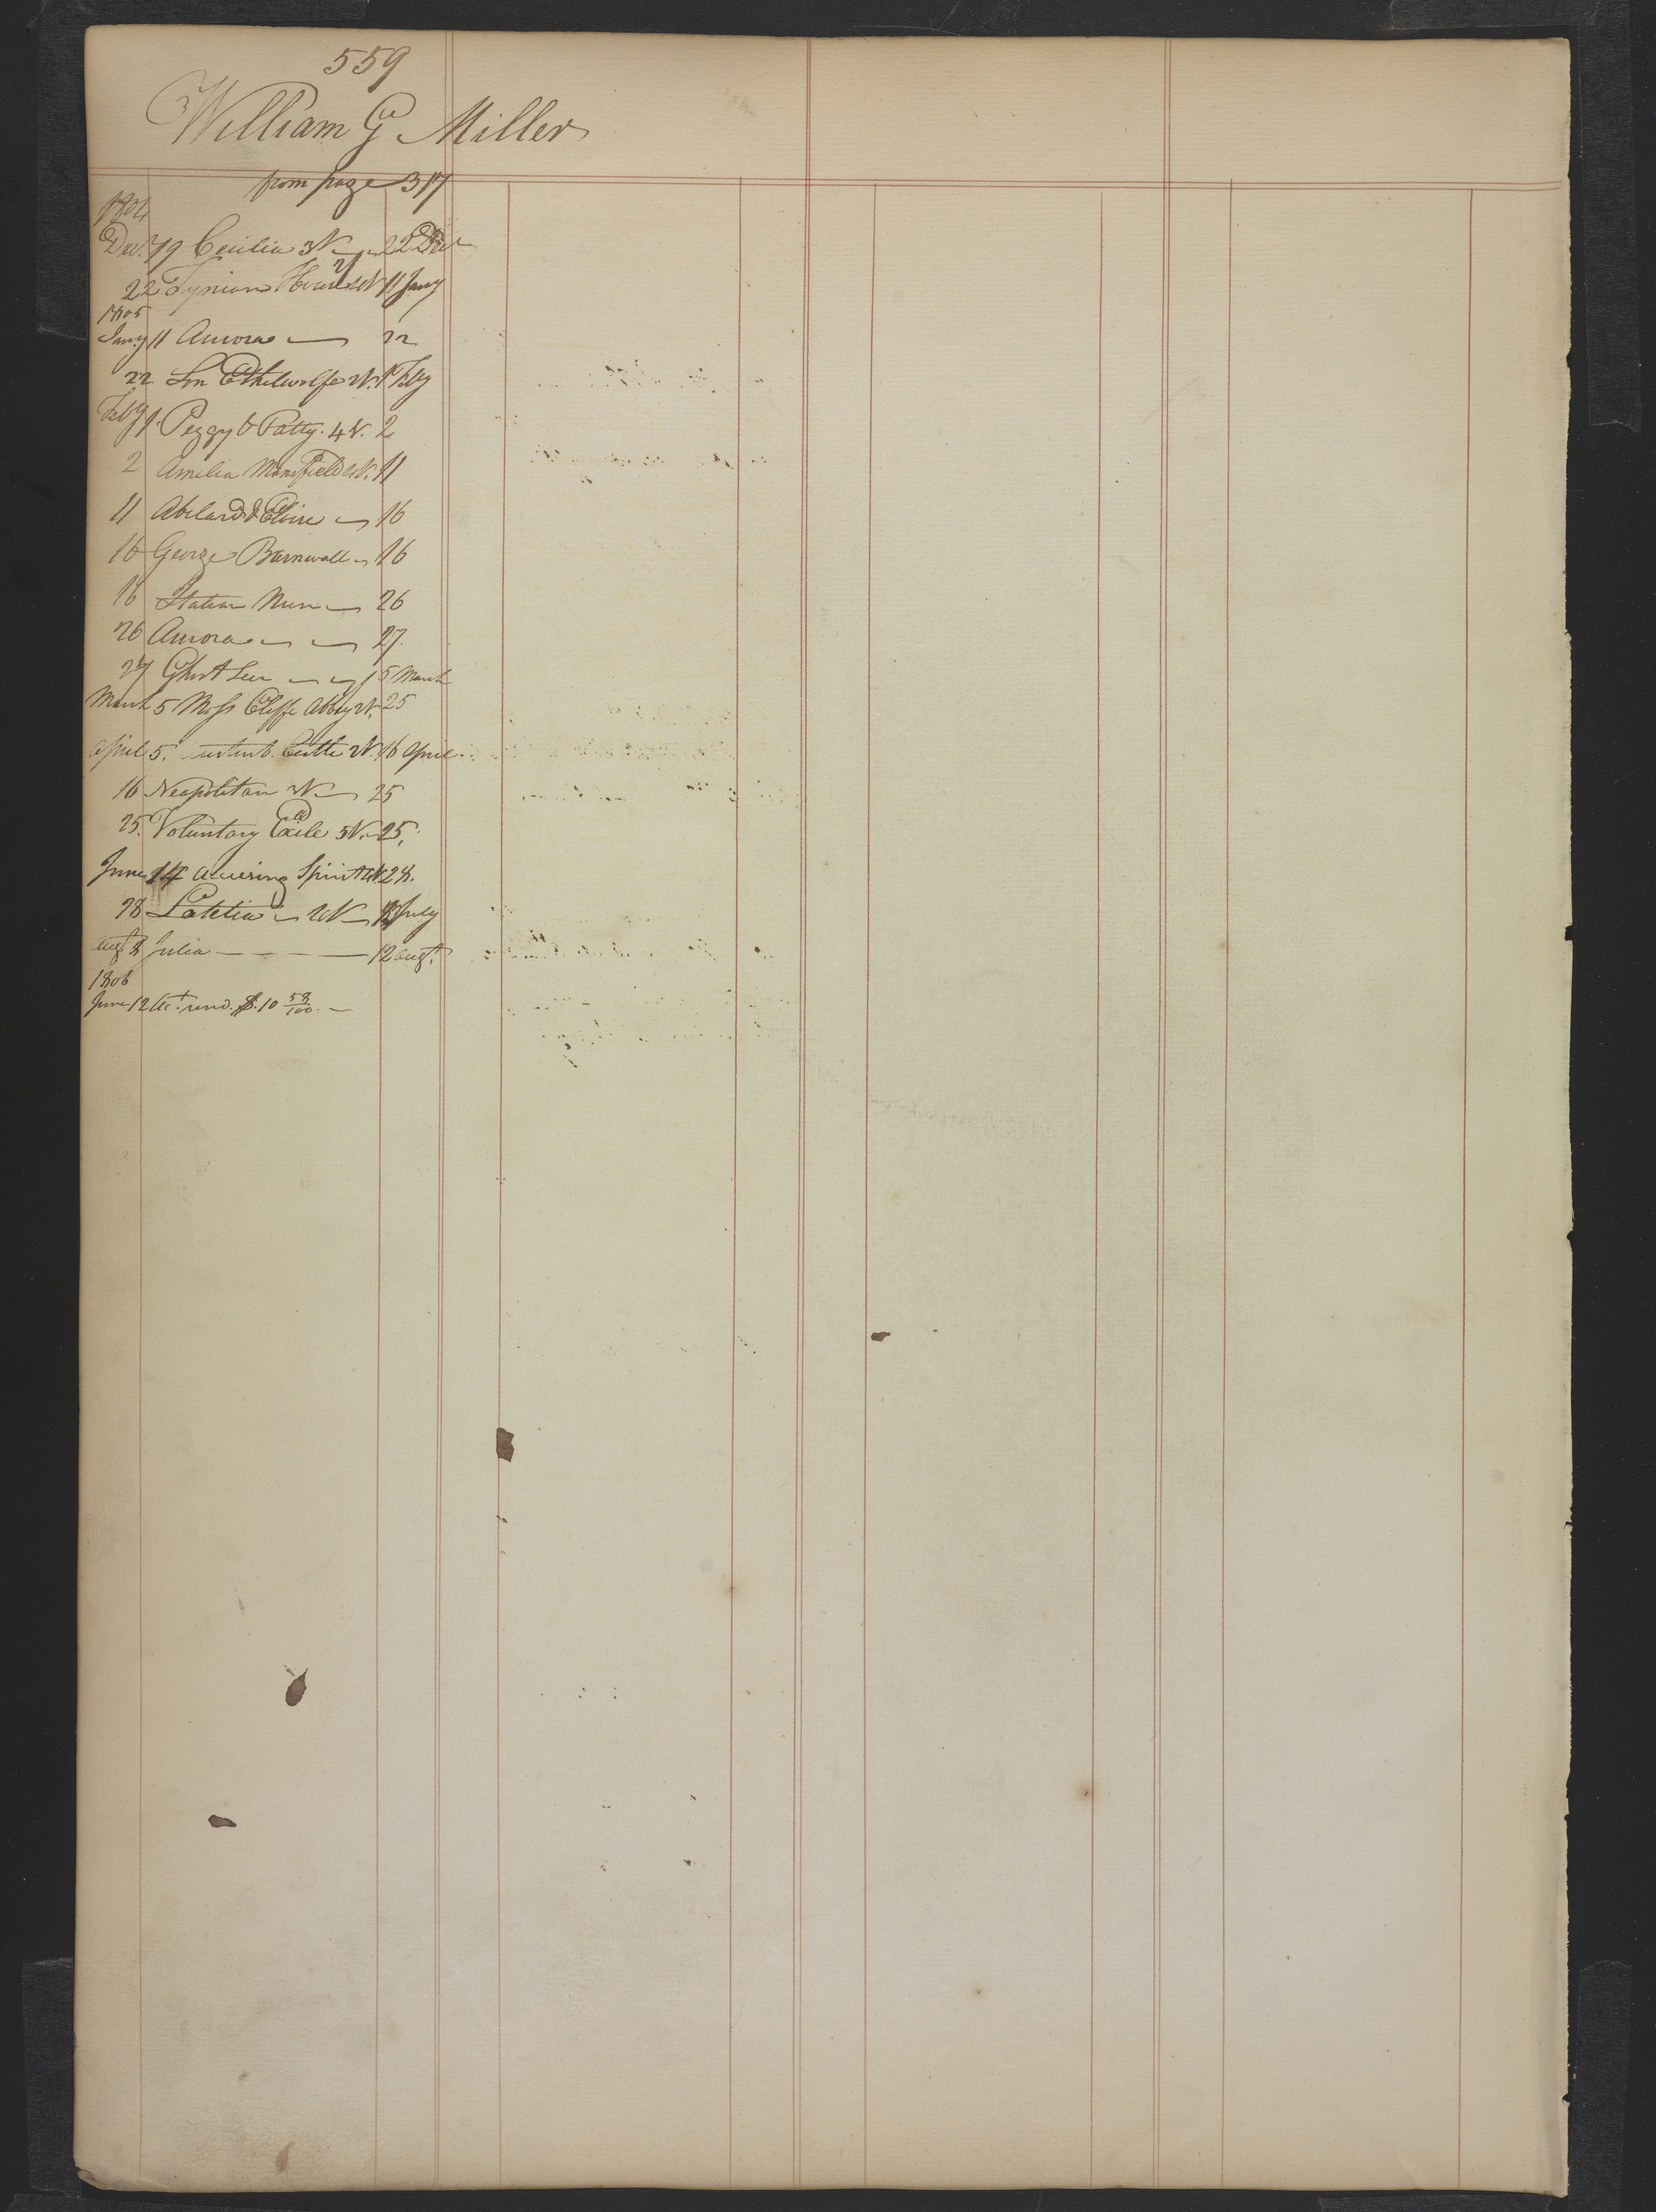 559
William G Miller
from page 317
1804
Dec. 19 Cecilia 3V 22 Dec
22 Tynian 2V 11 Jany
1805
Jany 11 Aurora 22
22 Son Ethelwolfe 2V. 1 Feby
Feby 1. Peggy & Patty. 4V. 2
2 Amelia Mansfield 4V. 11
11 Abelard & Eloise 16
16 George Barnwall 16
16 Italian Nun 26
26 Aurora 27.
27 Ghost Seer 5 March
March 5 Moss Cliffe Abbey V. 25
April 5. Castle 2V. 16 April
16 Neapolitan V 25
25. Voluntary Exile 5V. 25.
June 14 Accusing Spirit 4V. 28.
28 Letetia 2V July
Augt 8 Julia 12 Augt.
1806
June 12 Ac.t rend. $. 10 58/100.